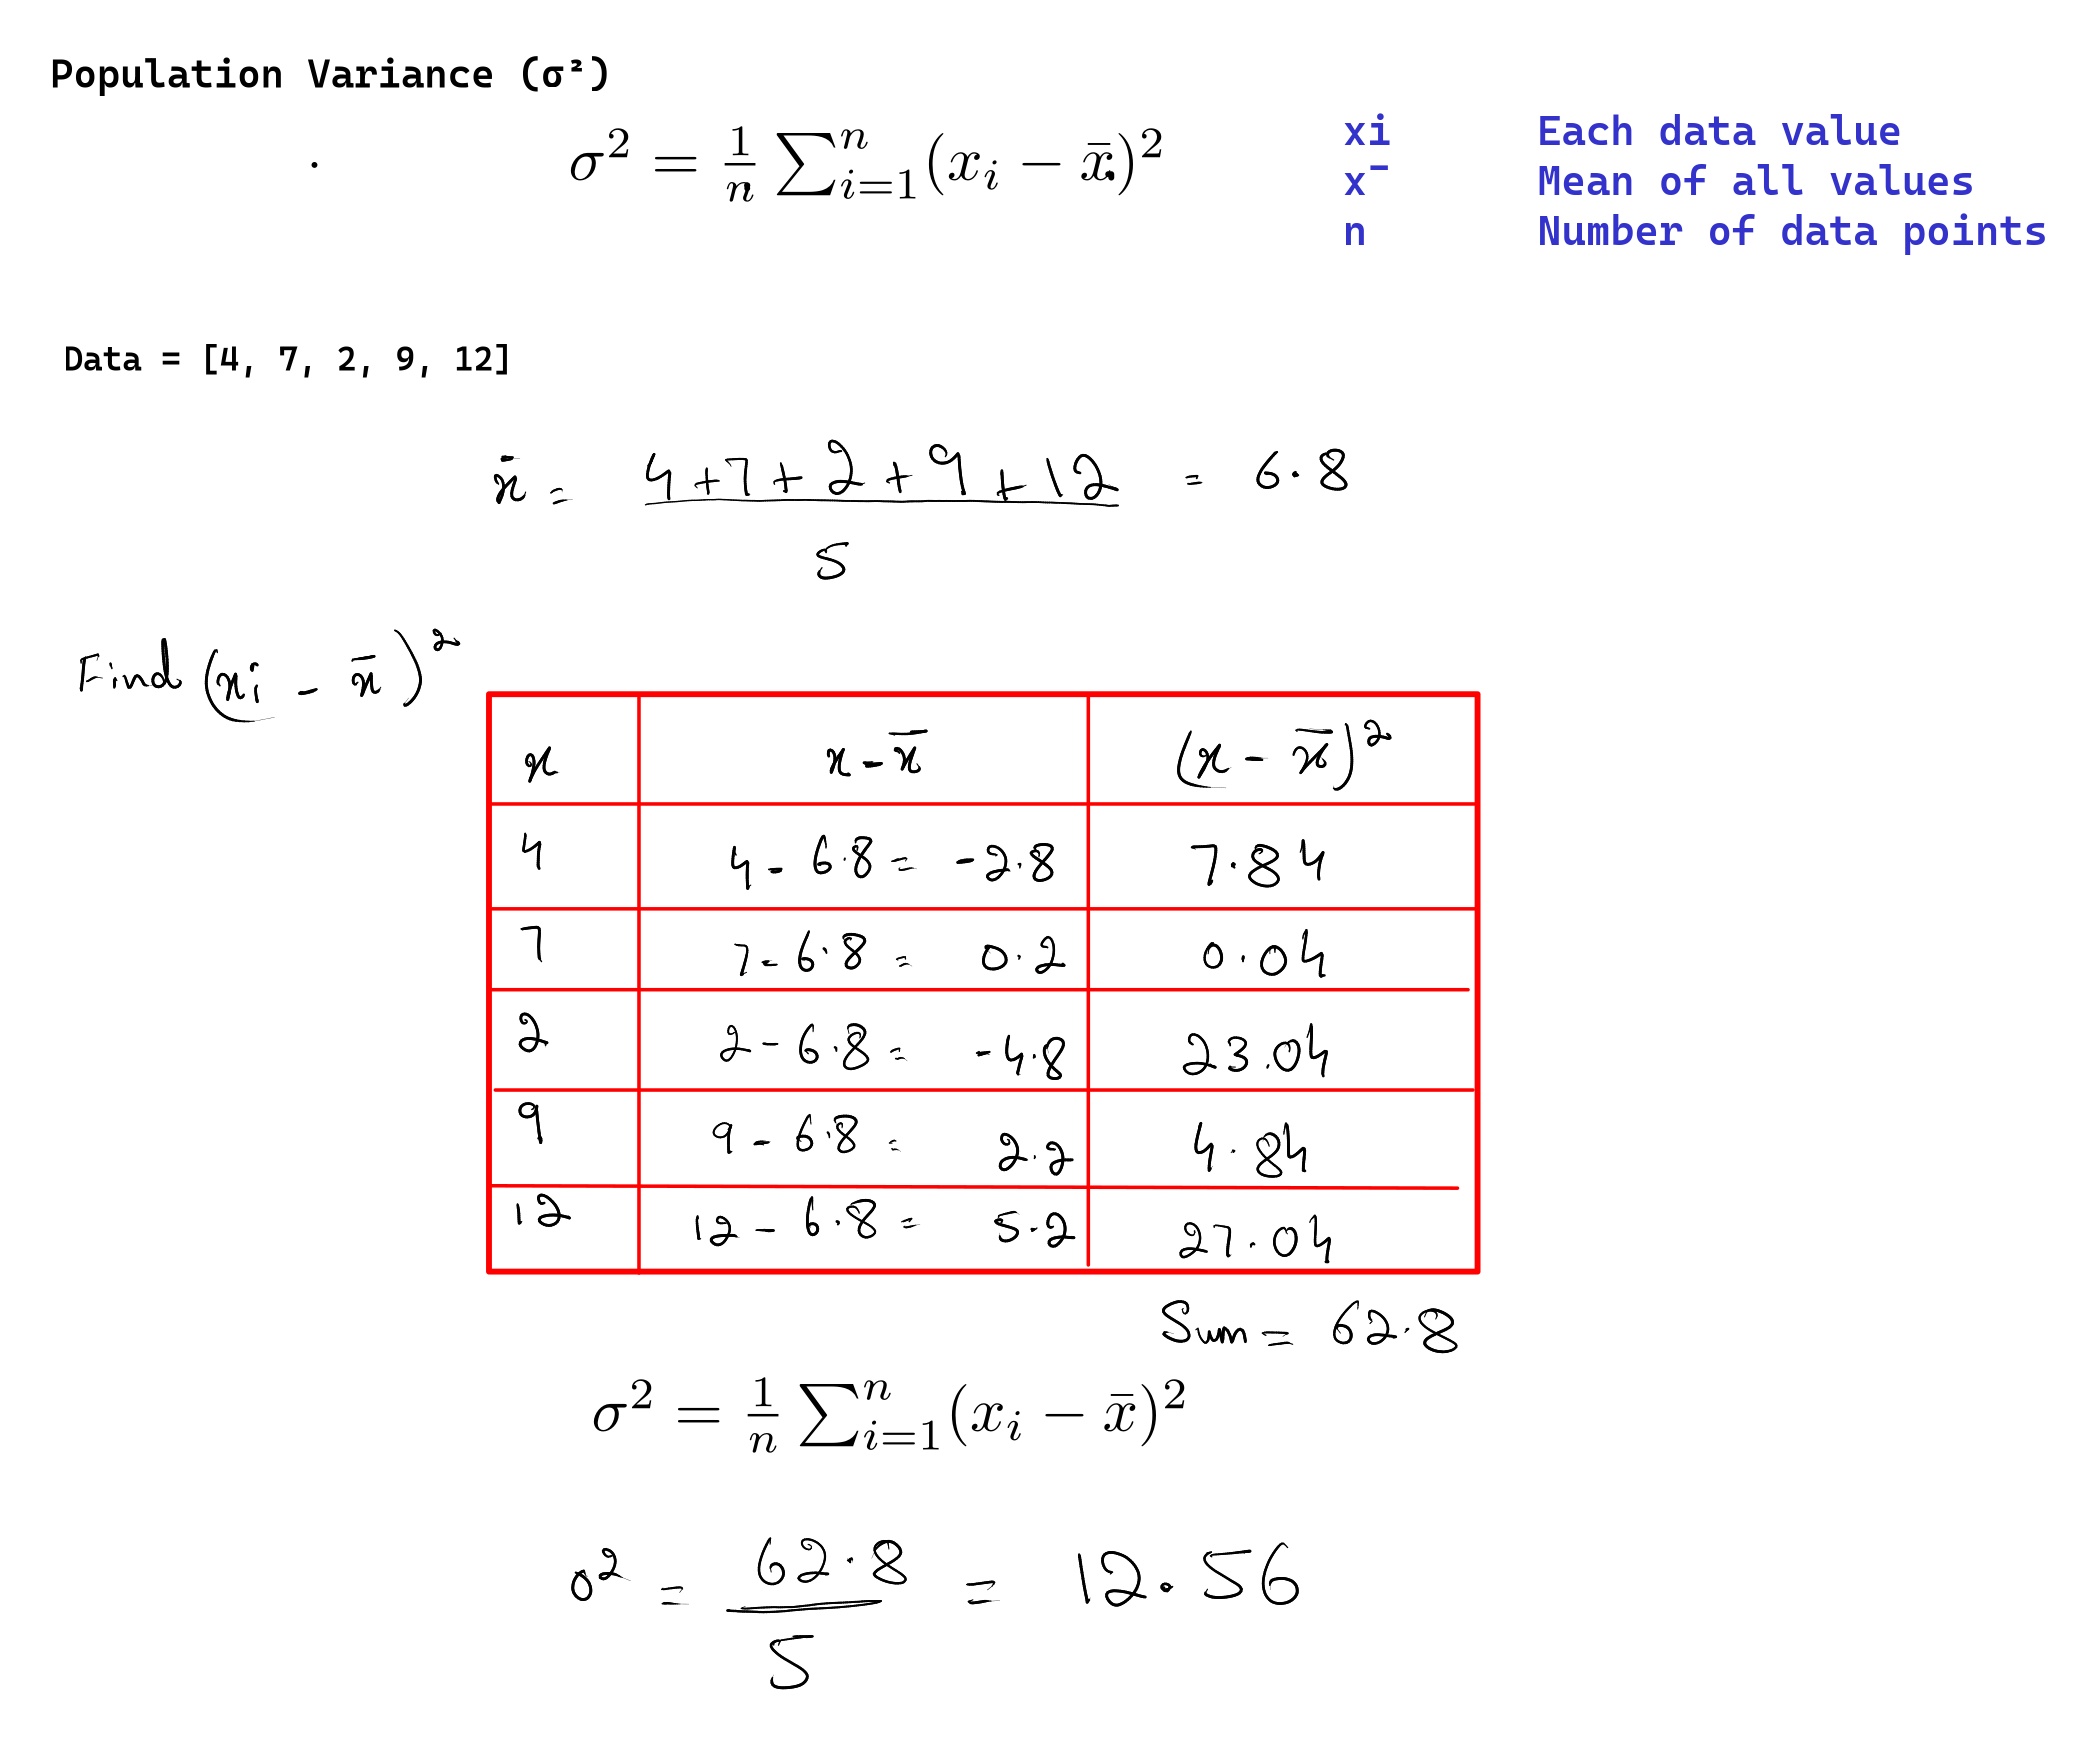 Population Variance (σ²)
σ² = 1/n ∑ⁿᵢ₌₁(xᵢ − x̄)²
xi Each data value
x¯ Mean of all values
n Number of data points
Data = [4, 7, 2, 9, 12]
x̄ = 4+7+2+9+12 / 5 = 6.8
Find (xi - x̄)²
x x-x̄ (x-x̄)²
4 4 - 6.8 = -2.8 7.84
7 7 - 6.8 = 0.2 0.04
2 2 - 6.8 = -4.8 23.04
9 9 - 6.8 = 2.2 4.84
12 12 - 6.8 = 5.2 27.04
Sum = 62.8
σ² = 1/n ∑ⁿᵢ₌₁(xᵢ − x̄)²
σ² = 62.8 / 5 = 12.56